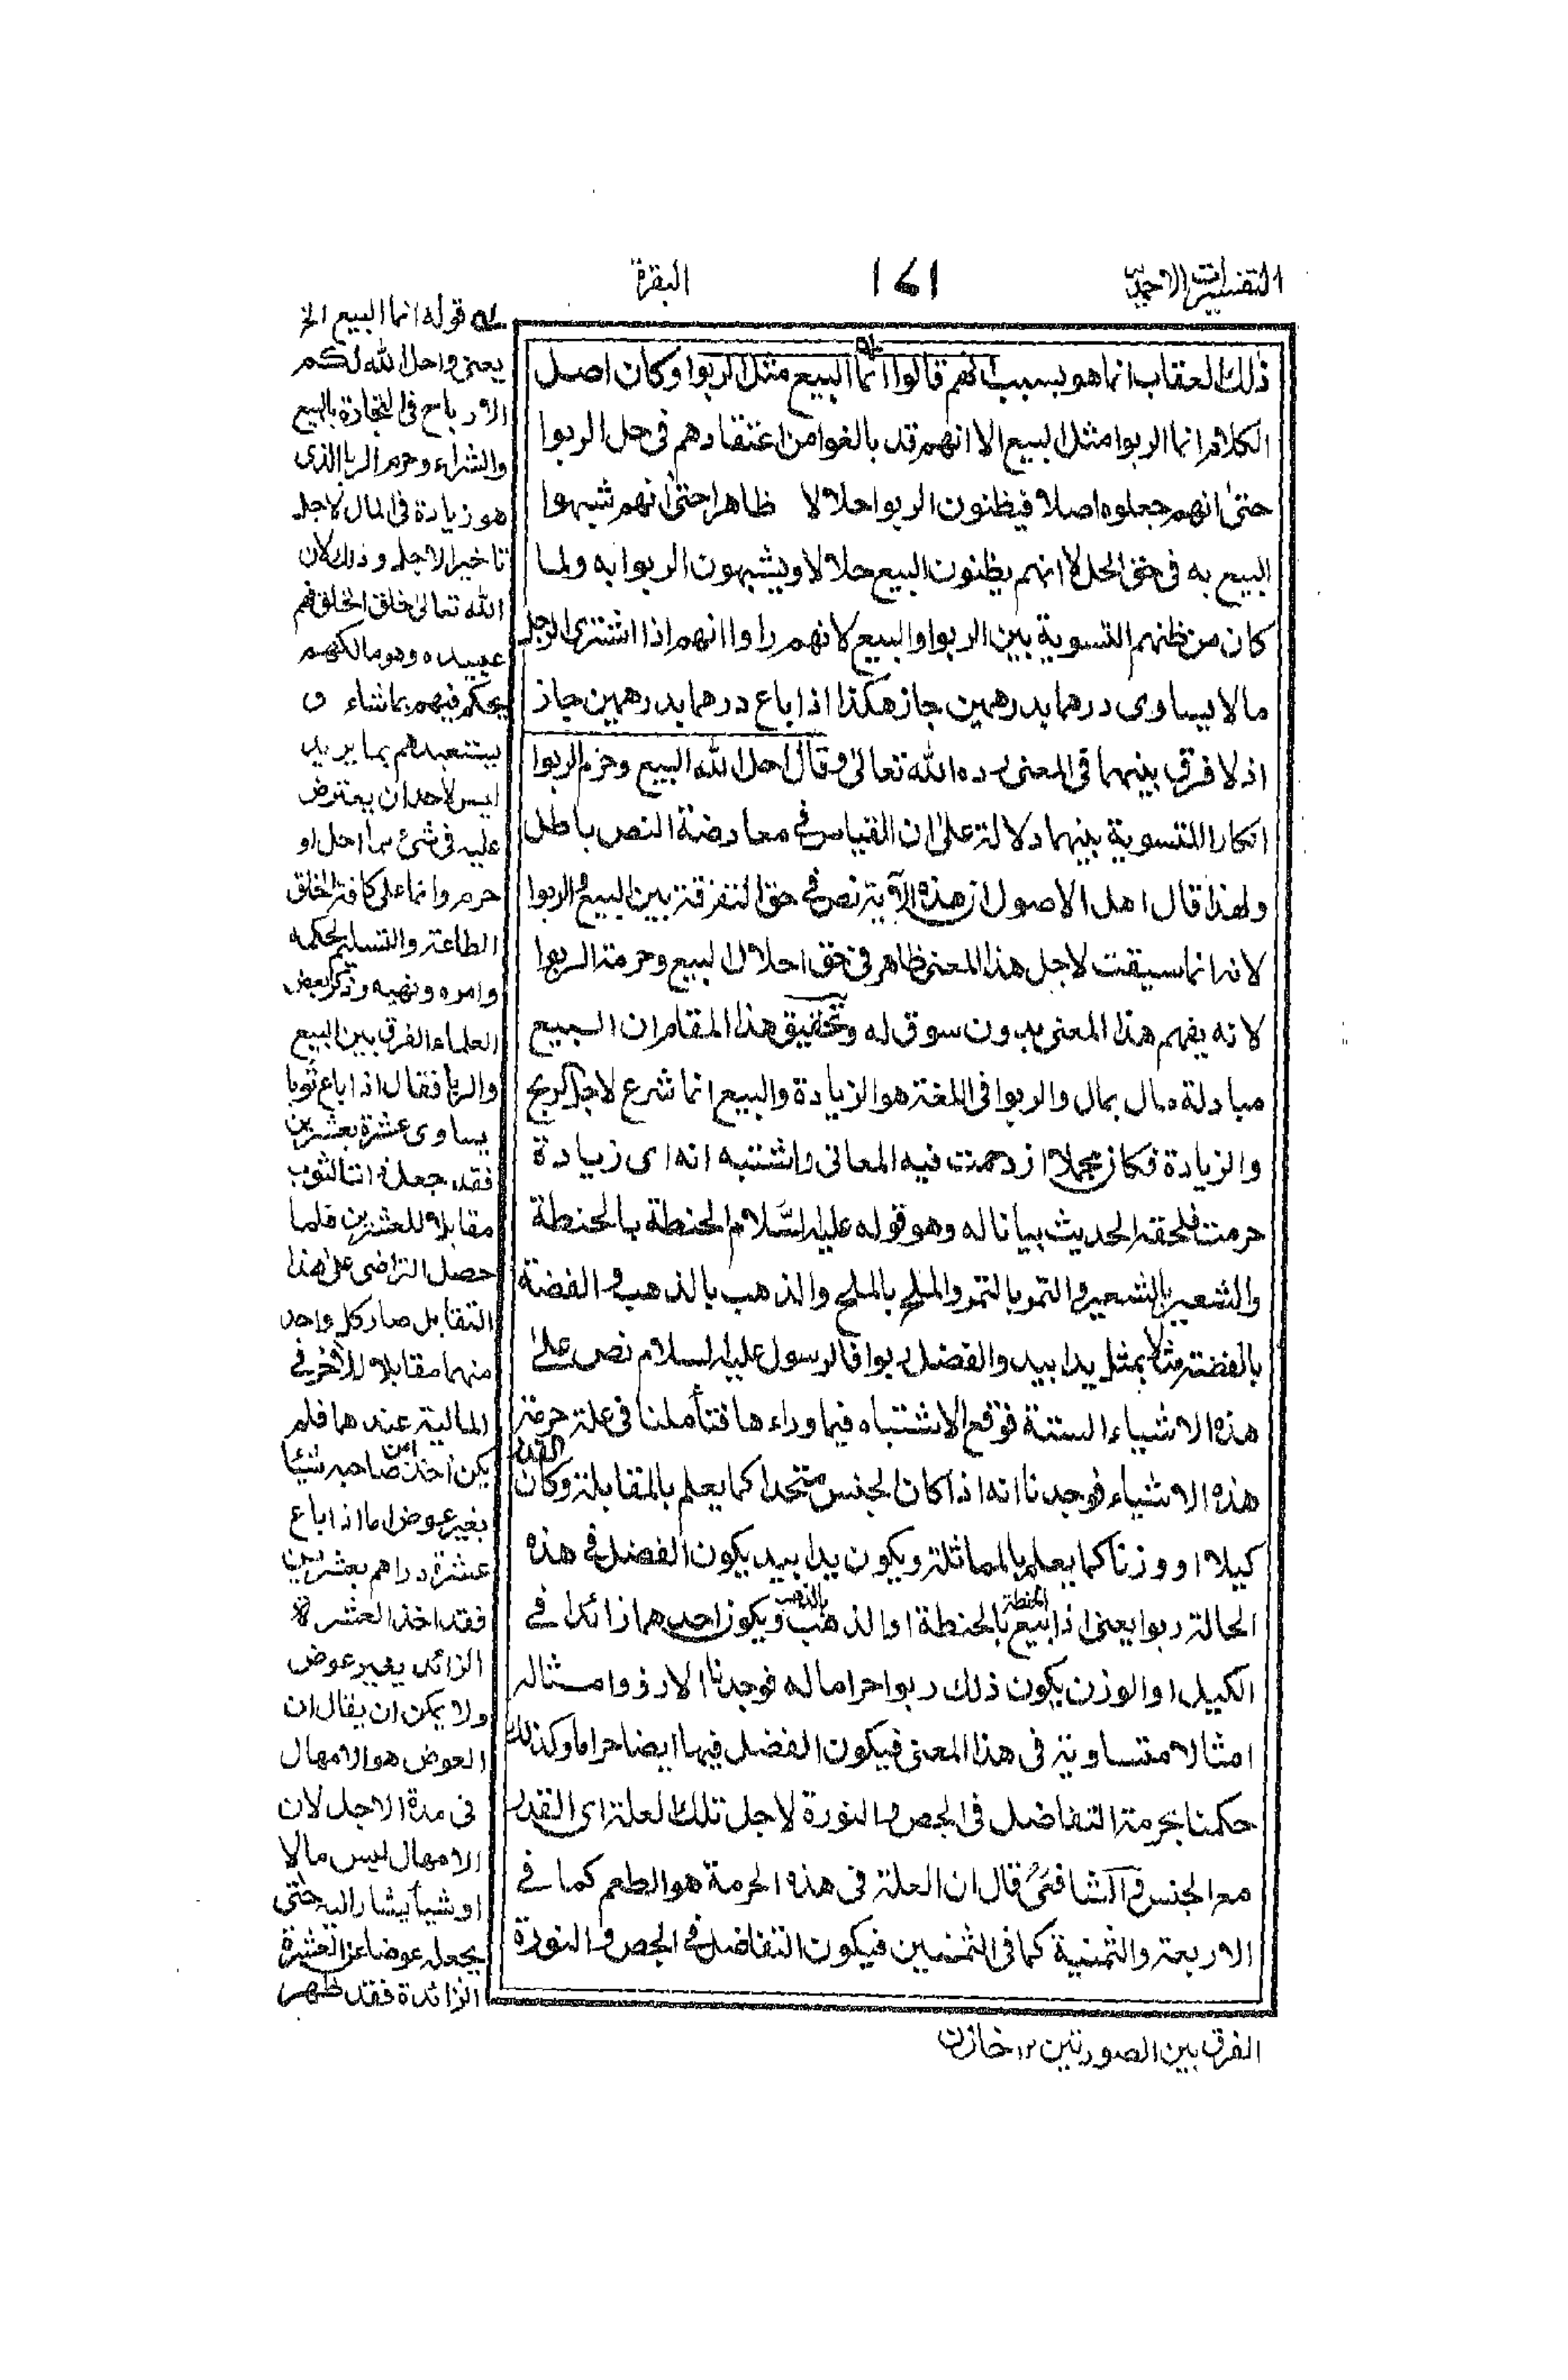 التفسيرات الاحمدية
١٧١
البقرة
ذلك العقاب انما هو بسبب انهم قالوا انما البيع مثل الربوا وكان اصل
الكلام انما الربوا مثل البيع الا انهم قد بالغوا من اعتقادهم فى حل الربوا
حتى انهم جعلوه اصلا فيظنون الربوا حلالا ظاهرا حتى انهم شبهوا
البيع به فى حق الحل لا انهم يظنون البيع حلالا ويشبهون الربوا به ولما
كان من ظنهم التسوية بين الربوا والبيع لانهم راوا انهم اذا اشترى الرجل
مالا يساوى درهما بدرهمين جاز هكذا اذا باع درهما بدرهمين جاز
اذ لا فرق بينهما فى المعنى رده الله تعالى وقال احل الله البيع وحرم الربوا
انكارا للتسوية بينهما دلالة على ان القياس فى معارضة النص باطل
ولهذا قال اهل الاصول ان هذه الآية نص فى حق التفرقة بين البيع والربوا
لانه انما سيقت لاجل هذا المعنى ظاهر فى حق احلال البيع وحرمة الربوا
لانه يفهم هذا المعنى بدون سوق له وتحقيق هذا المقام ان البيع
مبادلة مال بمال والربوا فى اللغة هو الزيادة والبيع انما شرع لاجل الربح
والزيادة فكان مجملا ازدحمت فيه المعانى واشتبه انه اى زيادة
حرمت فلحقه الحديث بيانا له وهو قوله عليه السلام الحنطة بالحنطة
والشعير بالشعير والتمر بالتمر والملح بالملح والذهب بالذهب والفضة
بالفضة مثلا بمثل يدا بيد والفضل ربوا فالرسول عليه السلام نص على
هذه الاشياء الستة فوقع الاشتباه فيما وراءها فتأملنا فى علة حرمة
هذه الاشياء فوجدنا انه اذا كان الجنس متحدا كما يعلم بالمقابلة وكان القدر
كيلا او وزنا كما يعلم بالمماثلة ويكون يدا بيد يكون الفضل فى هذه
الحالة ربوا يعنى اذا بيع الحنطة بالحنطة او الذهب بالذهب ويكون احدهما زائدا فى
الكيل او الوزن يكون ذلك ربوا حراما له فوجدنا الارز وامثاله
امثالا متساوية فى هذا المعنى فيكون الفضل فيها ايضا حراما وكذلك
حكمنا بحرمة التفاضل فى الجص والنورة لاجل تلك العلة اى القدر
مع الجنس والشافعىؒ قال ان العلة فى هذه الحرمة هو الطعم كما فى
الاربعة والثمنية كما فى الثمنين فيكون التفاضل فى الجص والنورة
له قوله انما البيع الخ
يعنى واحل الله لكم
الارباح فى التجارة بالبيع
والشراء وحرم الربا الذى
هو زيادة فى المال لاجل
تاخير الاجل وذلك لان
الله تعالى خلق الخلق فهم
عبيده وهو مالكهم
يحكم فيهم بما شاء و
يستعبدهم بما يريد
ليس لاحد ان يعترض
عليه فى شئ مما احل او
حرم وانما على كافة الخلق
الطاعة والتسليم لحكمه
وامره ونهيه وذكر بعض
العلماء الفرق بين البيع
والربا فقال اذا باع ثوبا
يساوى عشرة بعشرين
فقد جعل ذات الثوب
مقابلا للعشرين فلما
حصل التراضى على هذا
التقابل صار كل واحد
منهما مقابلا للآخر فى
المالية عندهما فلم
يكن اخذ من صاحبه شيئا
بغير عوض اما اذا باع
عشرة دراهم بعشرين
فقد اخذ العشرة
الزائد بغير عوض
ولا يمكن ان يقال ان
العوض هو الامهال
فى مدة الاجل لان
الامهال ليس مالا
او شيأ يشار اليه حتى
يجعله عوضا عن العشرة
الزائدة فقد ظهر
الفرق بين الصورتين ١٢ خازن